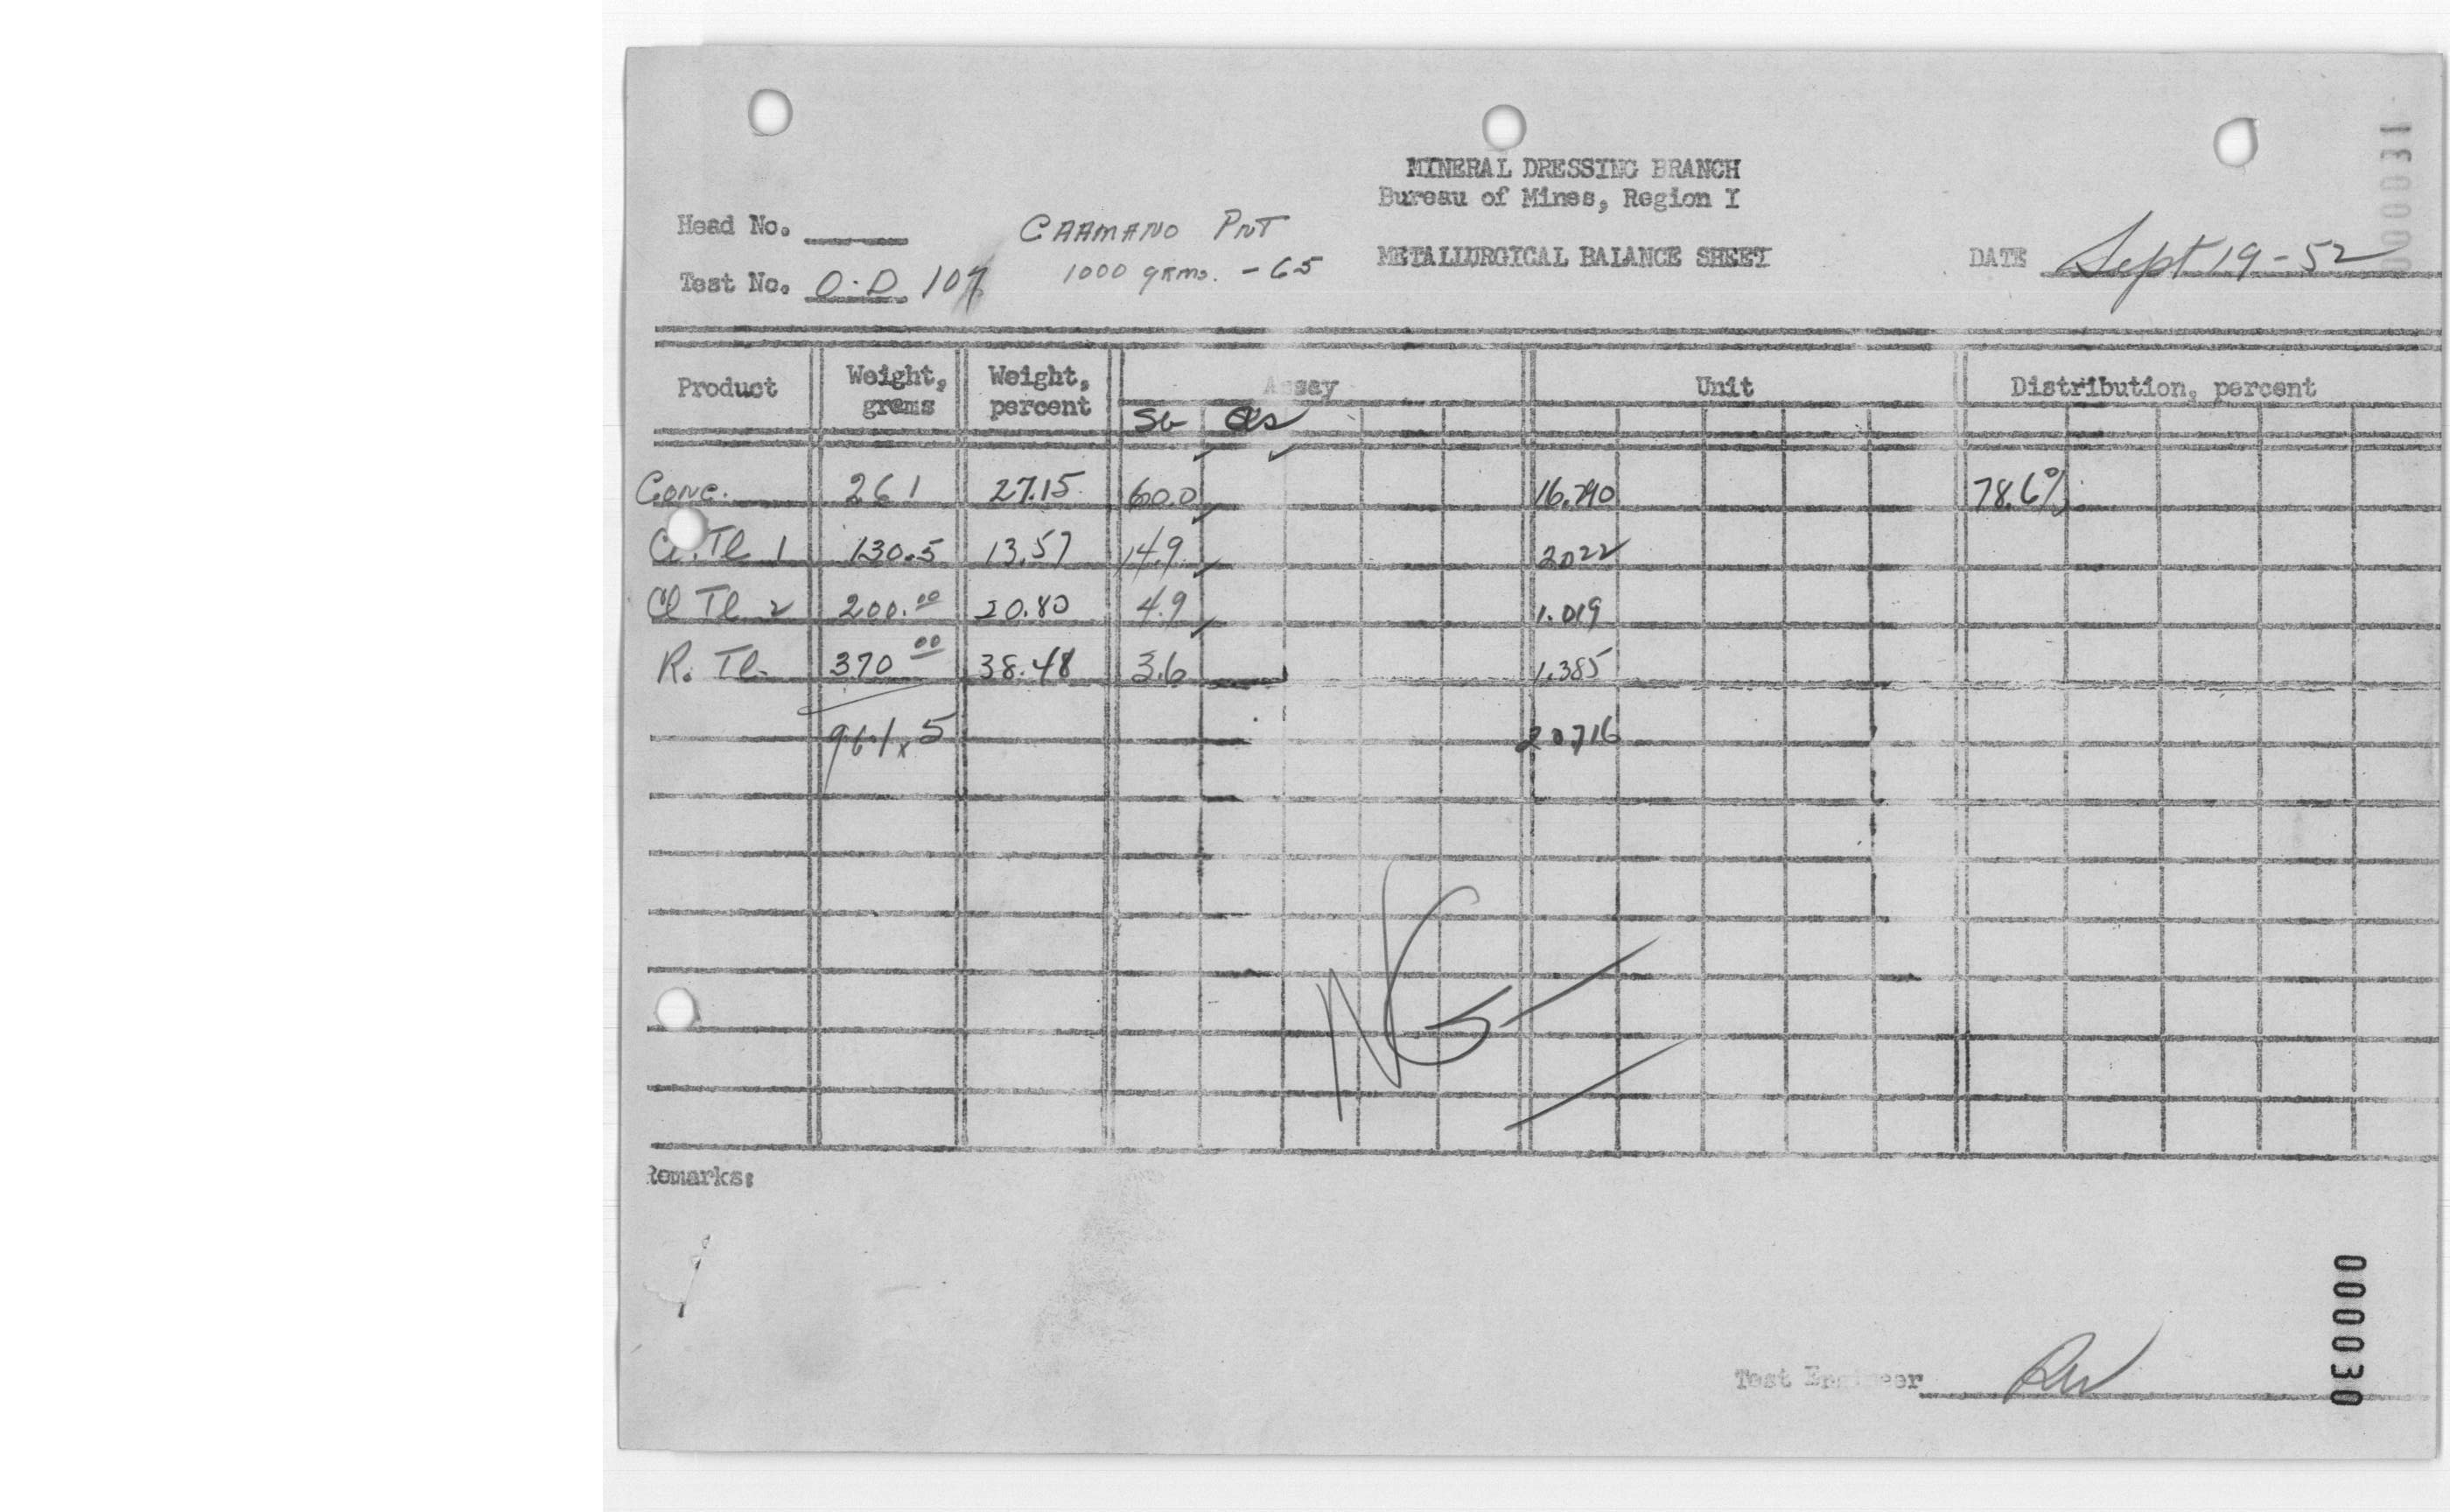 MINERAL DRESSING BRANCH
Bureau of Mines, Region I
METALLURGICAL BALANCE SHEET
Head No.
CAAMANO PNT
Test No. O.D 107
1000 grms. -65
DATE Sept 19-52
000031
Product Weight, grams Weight, percent Assay Unit Distribution, percent
Sb
Conc. 261 27.15 60.0 16.290 78.6%
Cl. Tl 1 130.5 13.57 14.9 2022
Cl Tl 2 200.00 20.80 4.9 1.019
R. Tl. 370 00 38.48 3.6 1.385
961.5 20716
NG
Remarks:
Test Engineer RW
000030